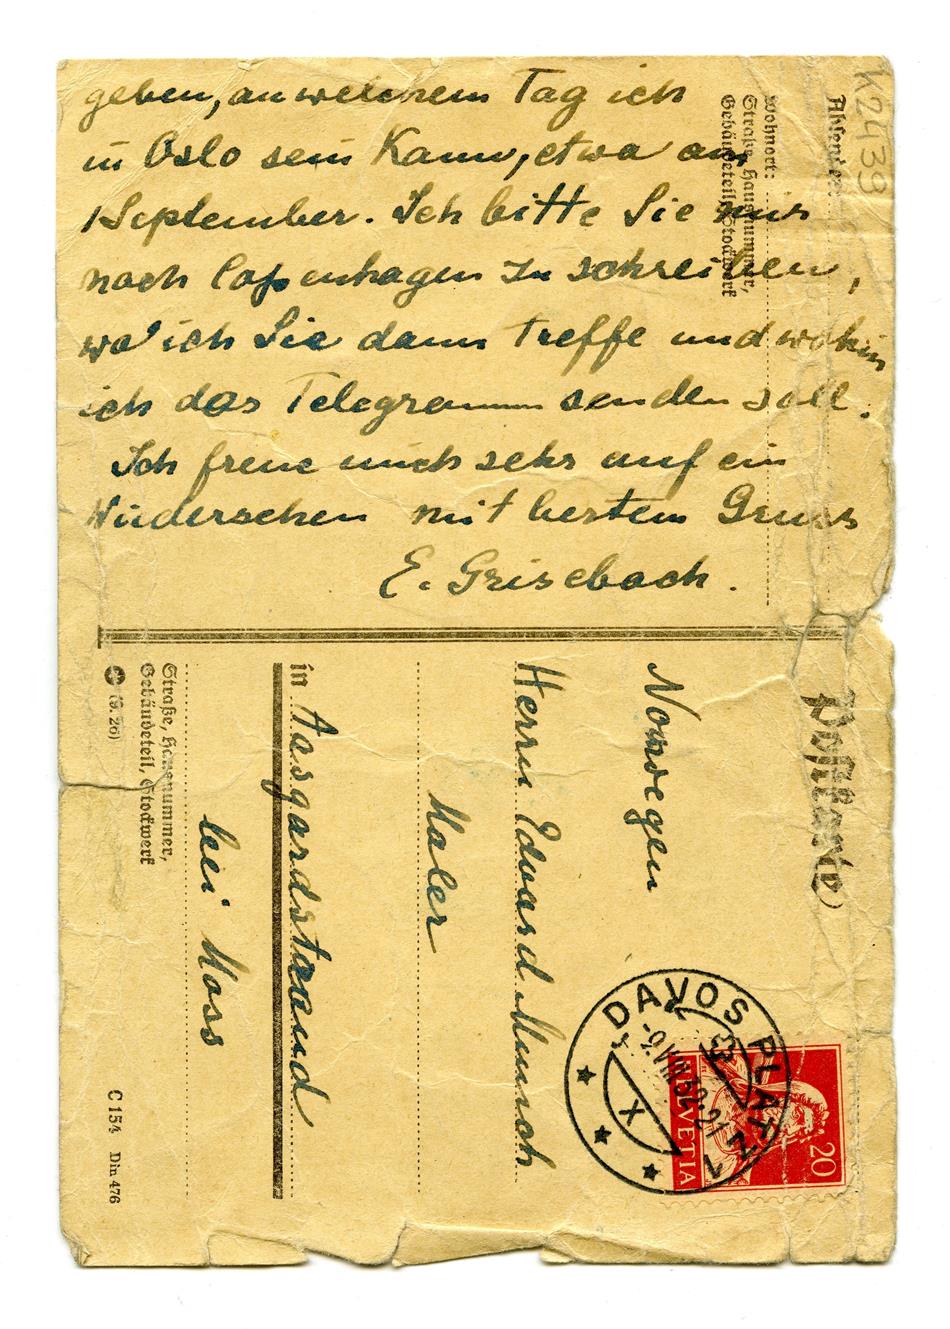 geben, an welchem Tag ich
in Oslo sein kann, etwa am
1 September. Ich bitte Sie mir
nach Copenhagen zu schreiben,
wo ich Sie dann treffe und wohin
ich das Telegramm senden soll.
Ich freue mich sehr auf ein
Wiedersehen mit bestem Gruss
E. Grisebach.
K2439
Absender:
Wohnort:
Straße, Hausnummer,
Gebäudeteil, Stockwerk
Postkarte
Norwegen
Herrn Edvard Munch
Maler
in Aasgardstrand
bei Moss
Straße, Hausnummer,
Gebäudeteil, Stockwerk
(9. 26)
C 154 Din 476
DAVOS PLATZ 1
VIII 32-21
X
HELVETIA
20